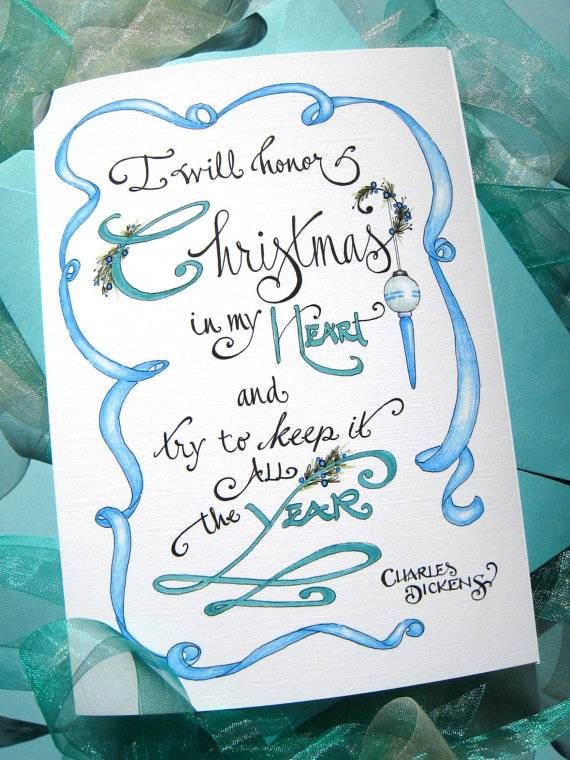 I will honor
Christmas
in my HEART
and
try to keep it
ALL
the YEAR
CHARLES
DICKENS